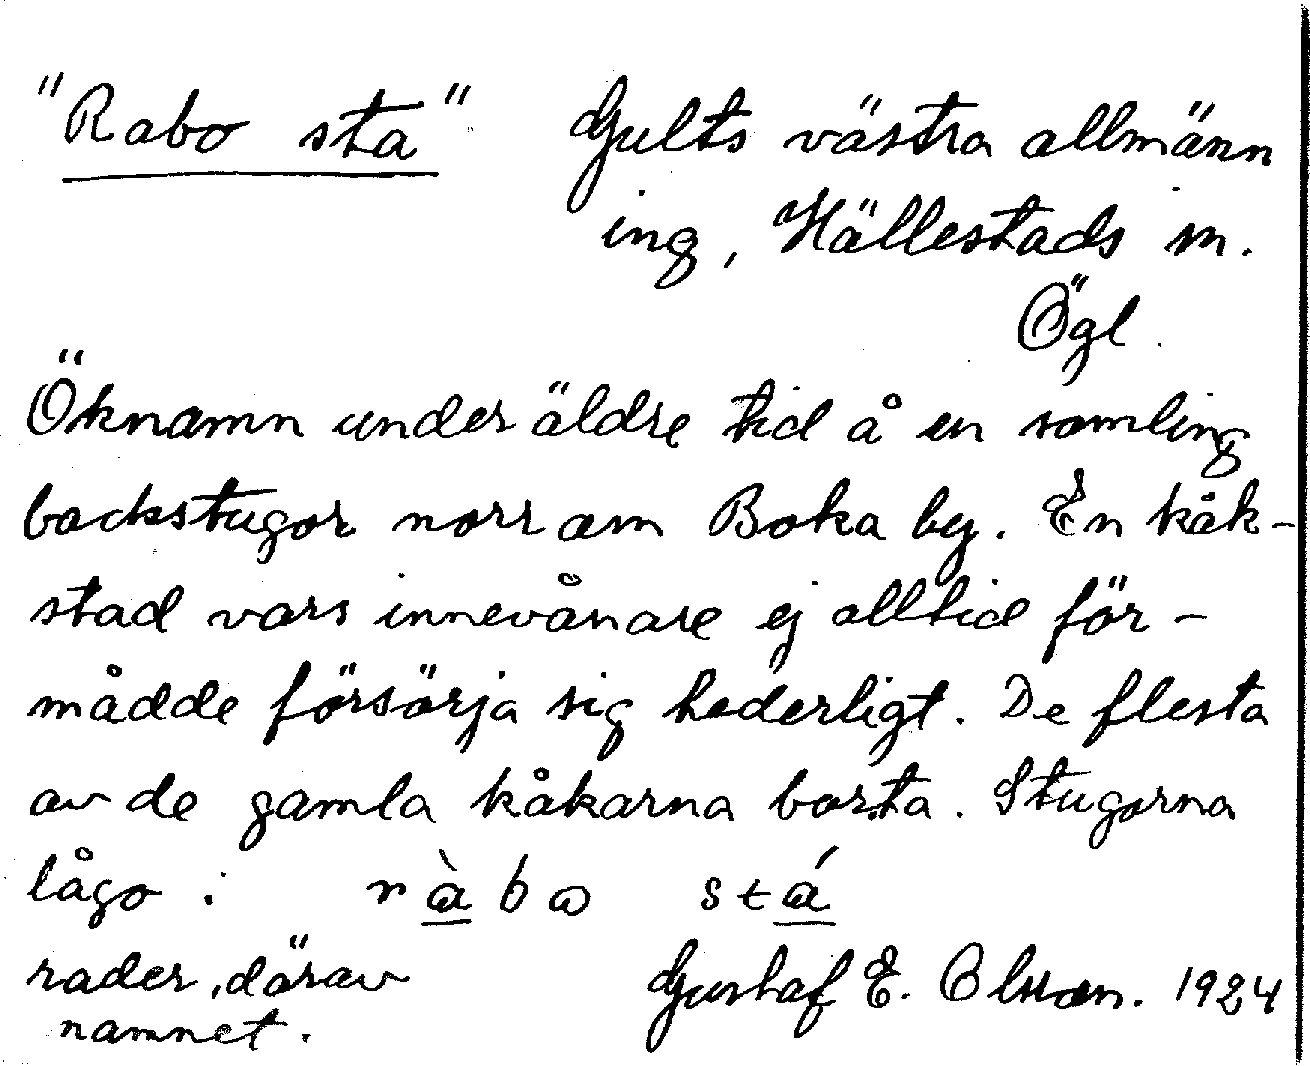 "Rabo sta" Gults västra allmänn
ing, Hällestads sn.
Ögl.
Öknamn under äldre tid å en samling
backstugor norr om Boka by. En kåk-
stad vars innevånare ej alltid för-
mådde försörja sig hederligt. De flesta
av de gamla kåkarna borta. Stugorna
lågo i rà bo stá
rader, därav
namnet.
Gustaf E. Olsson. 1924